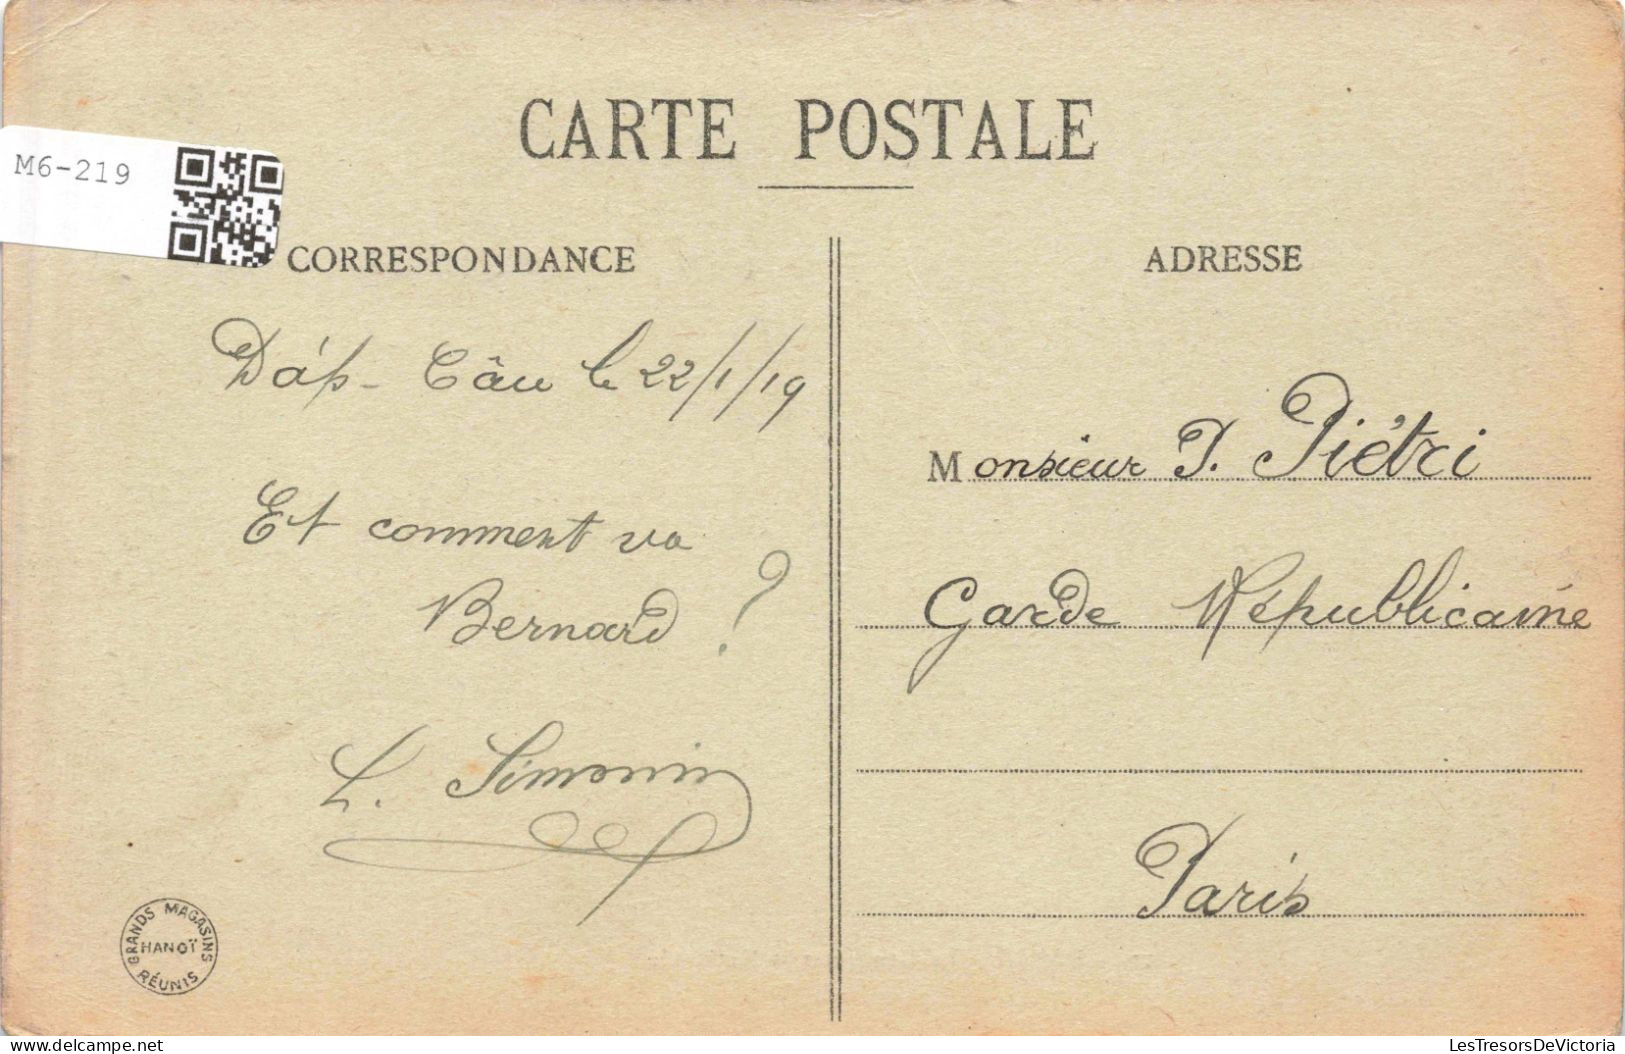 CARTE POSTALE
M6-219
CORRESPONDANCE
Dáp-Câu le 22/1/19
Et comment va
Bernard ?
L. Simonin
GRANDS MAGASINS
HANOÏ
RÉUNIS
ADRESSE
Monsieur P. Piétri
Garde Républicaine
Paris
delcampe.net
LesTresorsDeVictoria